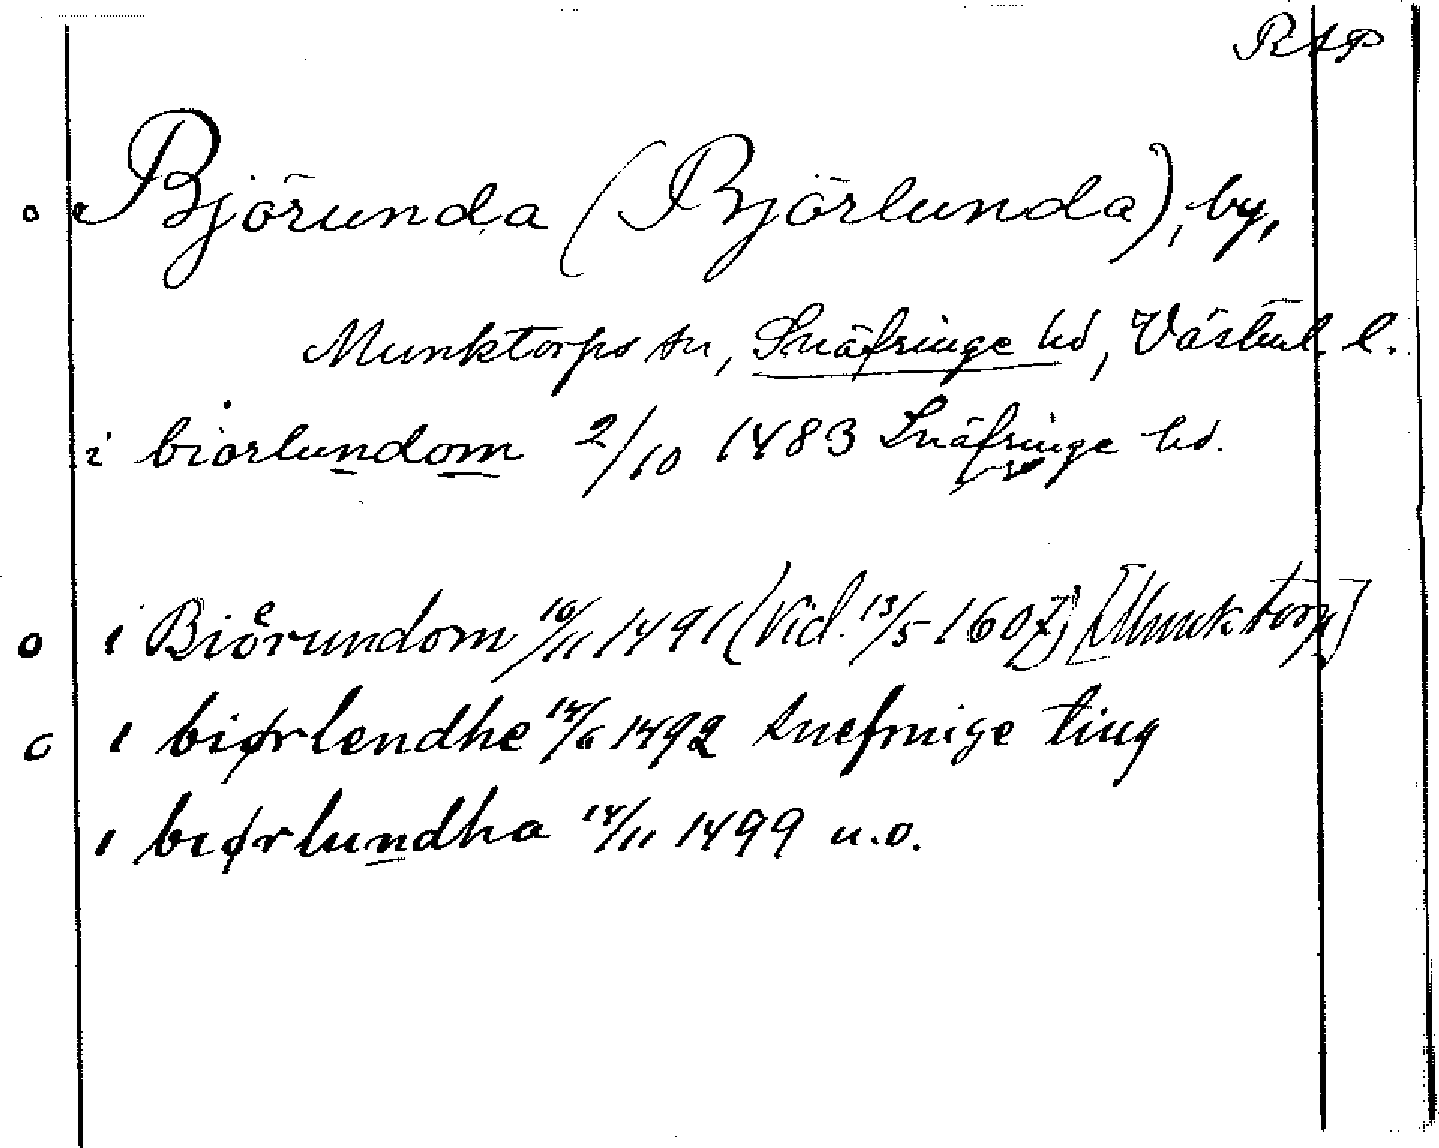 RAP
Björunda (Björlunda), by,
Munktorps sn, Snäfringe hd, Västml. l.
i biorlundom 2/10 1483 Snäfringe hd.
i Biöͤrundom 10/11 1491 (Vid. 13/5 1607) [Munktorp]
i biørlendhe 14/6 1492 snefringe ting
i biørlundha 14/11 1499 u.o.